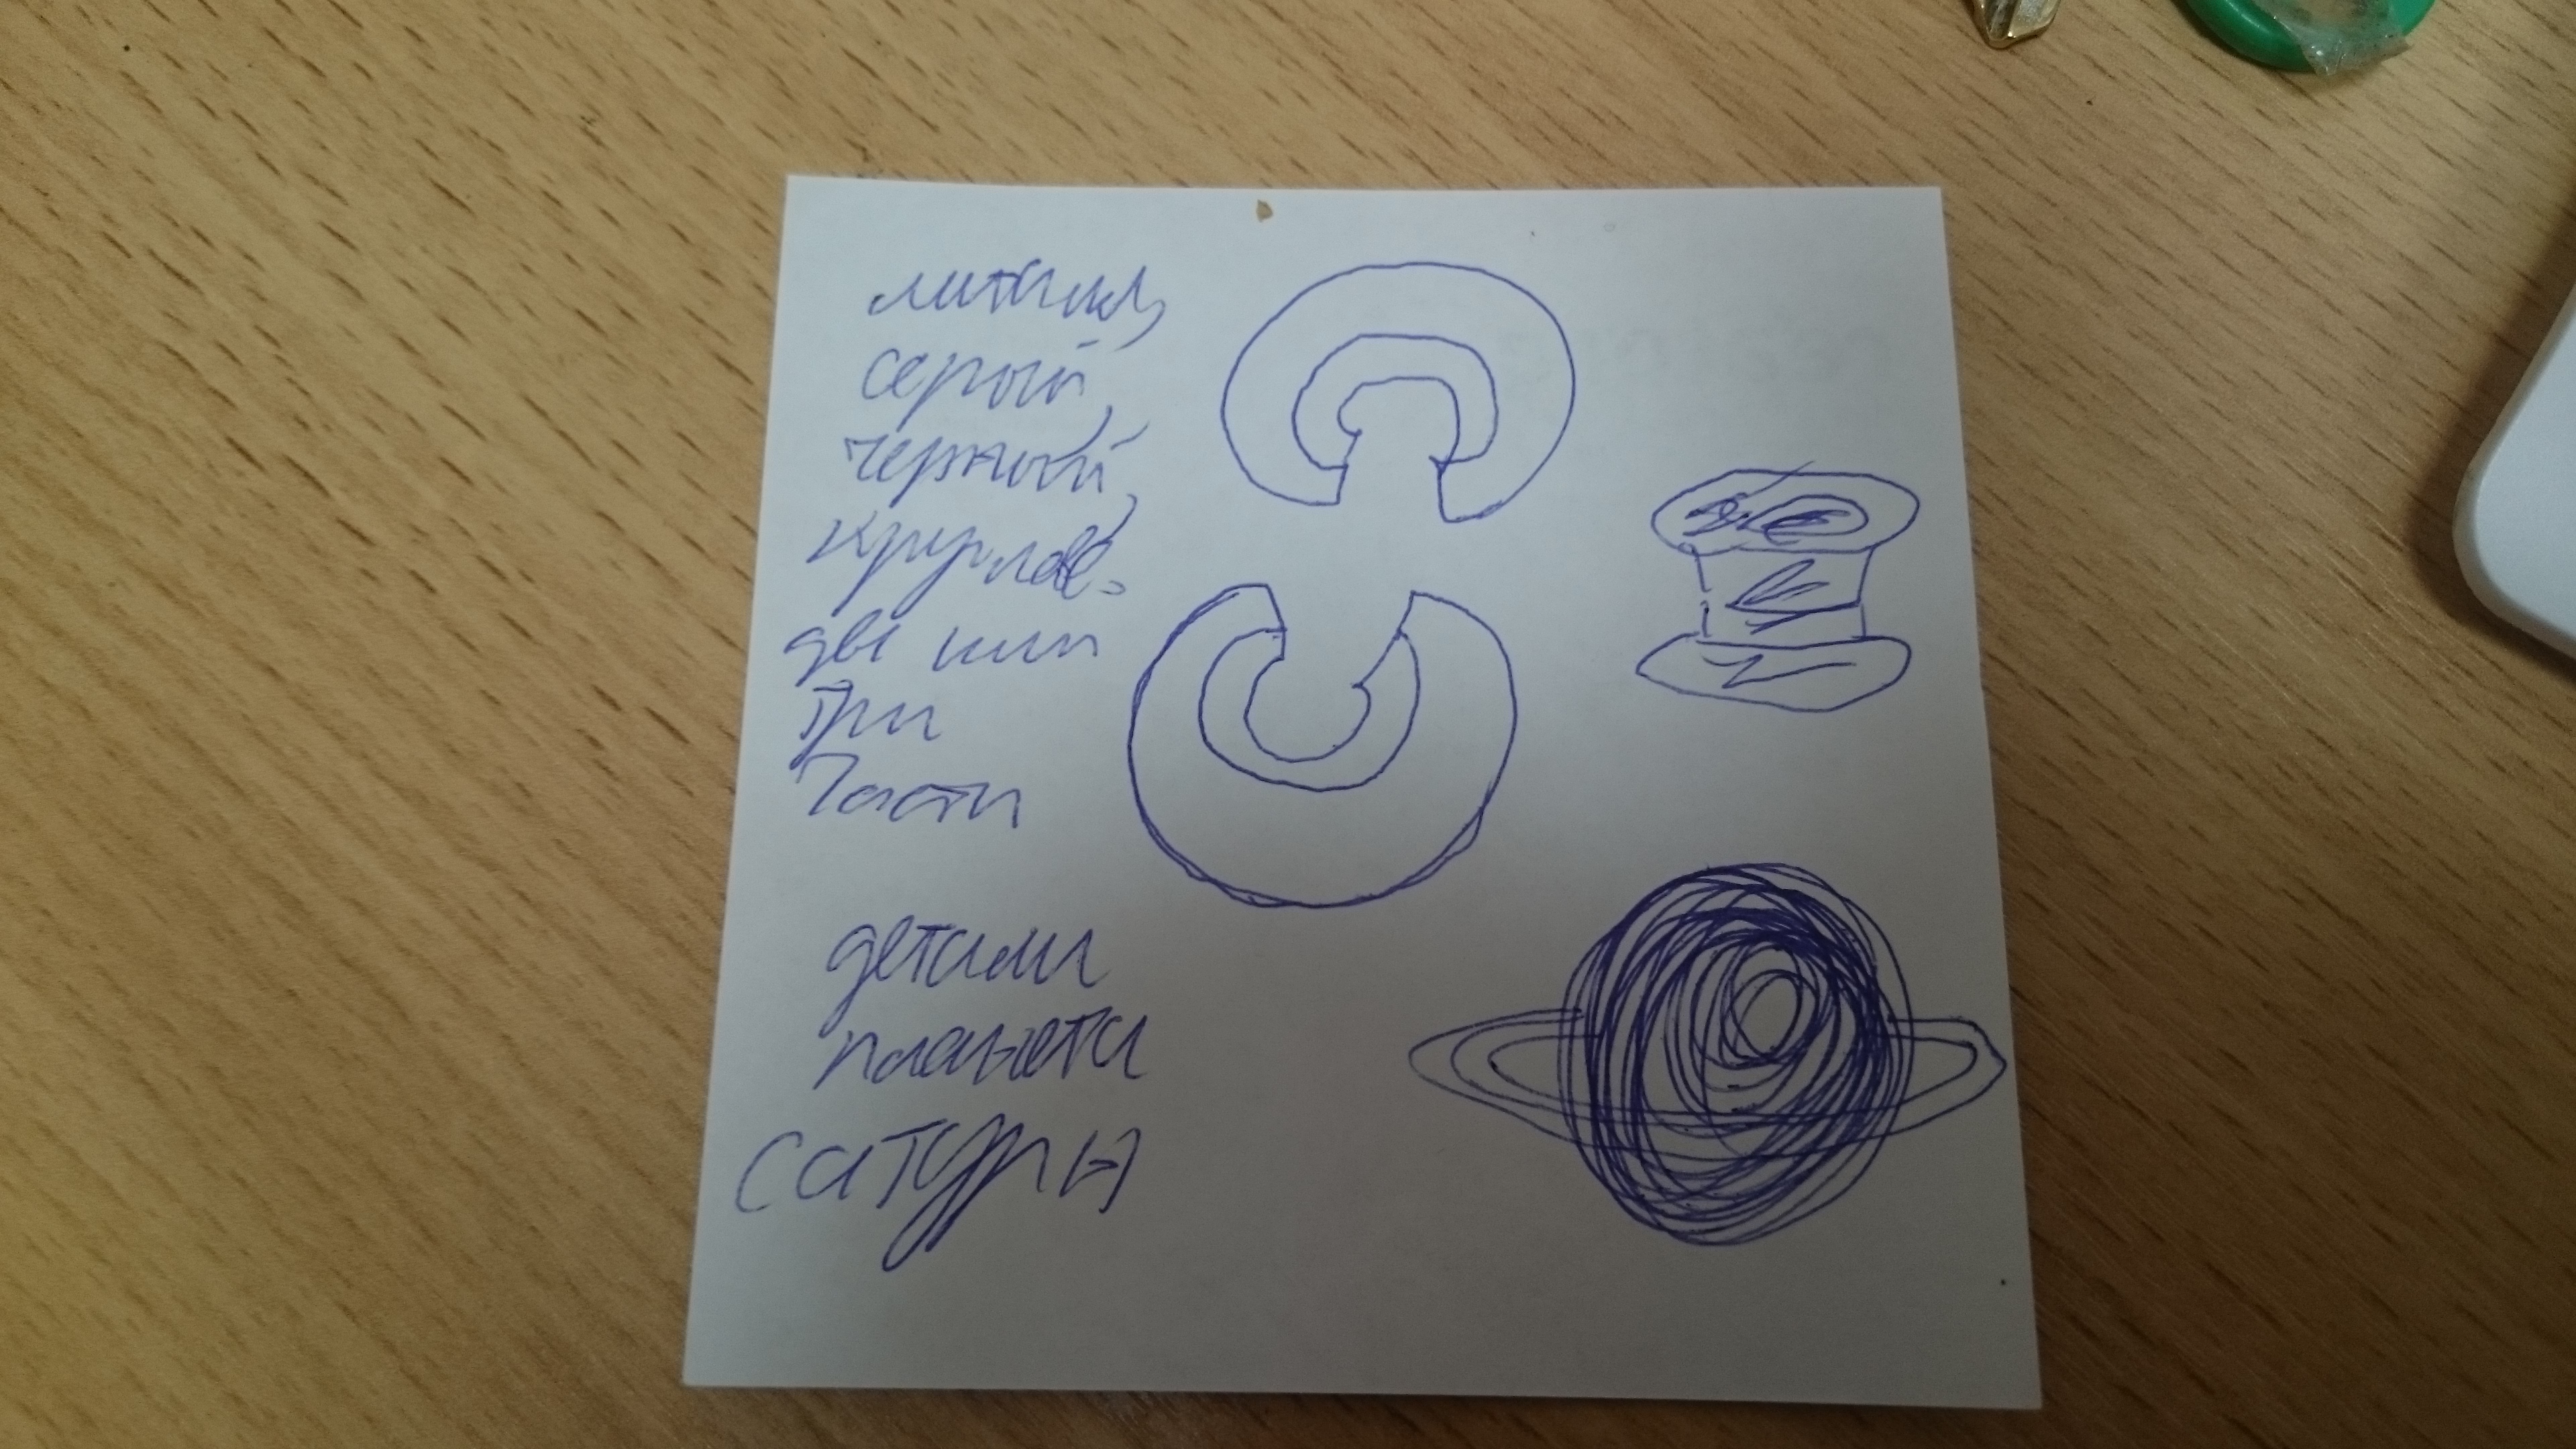 металл,
серый,
черный,
круглое,
две или
три
части
детали
планета
сатурн